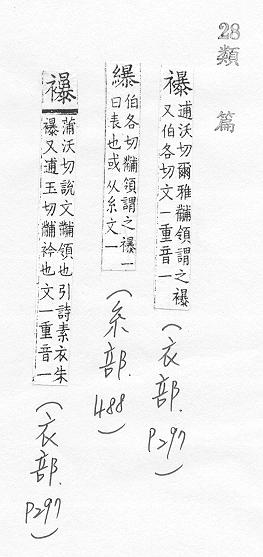 28
類篇
襮逋沃切爾雅黼領謂之襮
又伯各切文一重音一
(衣部.P297)
㬧伯各切黼領謂之襮一
曰表也或从糸文一
(糸部.488)
襮蒲沃切說文黼領也引詩素衣朱
襮又逋玉切黼衿也文一重音一
(衣部.P297)